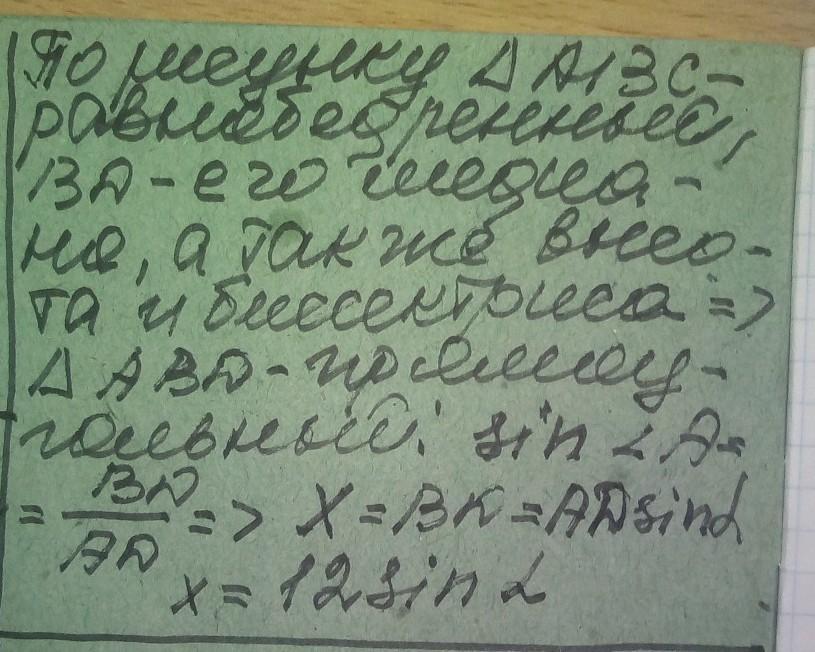 По рисунку Δ ABC-
равнобедренный,
BD - его медиа-
на, а также высо-
та и биссектриса =>
Δ ABD - прямоу-
гольный: sin ∠A=
= BD/AD => X = BD = AD sin α
x = 12 sin α